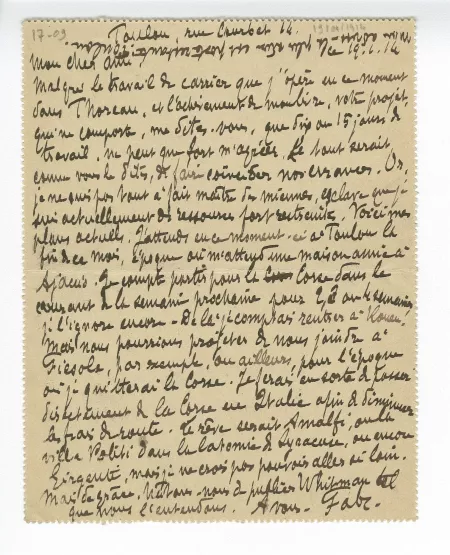 17-03
19/01/1914
Toulon, rue Courbet 14.
Mon cher ami
ce 19.1.14
Malgré le travail de carrier que j'opère en ce moment
dans Thoreau, et l'achèvement de moulire, votre projet,
qui ne comporte, me dites-vous, que dix ou 15 jours de
travail, ne peut que fort m'agréer. Le tout serait,
comme vous le dites, de faire coïncider nos errances. Or,
je ne suis pas tout à fait maître des miennes, esclave que je
suis actuellement de ressources fort restreintes. Voici mes
plans actuels. J'attends en ce moment-ci à Toulon la
fin de ce mois, époque où m'attend une maison amie à
Ajaccio. Je compte partir pour la Corse dans le
courant de la semaine prochaine pour 2, 3 ou 4 semaines
je l'ignore encore - De là je comptais rentrer à Rouen.
Mais nous pourrions projeter de nous joindre à
Fiesole, par exemple, ou ailleurs, pour l'époque
où je quitterai la Corse. Je ferais en sorte de passer
directement de la Corse en Italie afin de diminuer
les frais de route. Le rêve serait Amalfi, ou la
villa Politi dans la latomie de Syracuse, ou encore
Girgenti, mais je ne crois pas pouvoir aller si loin.
Mais de grâce, hâtons-nous de publier Whitman tel
que nous l'entendons. A vous. Fabr.